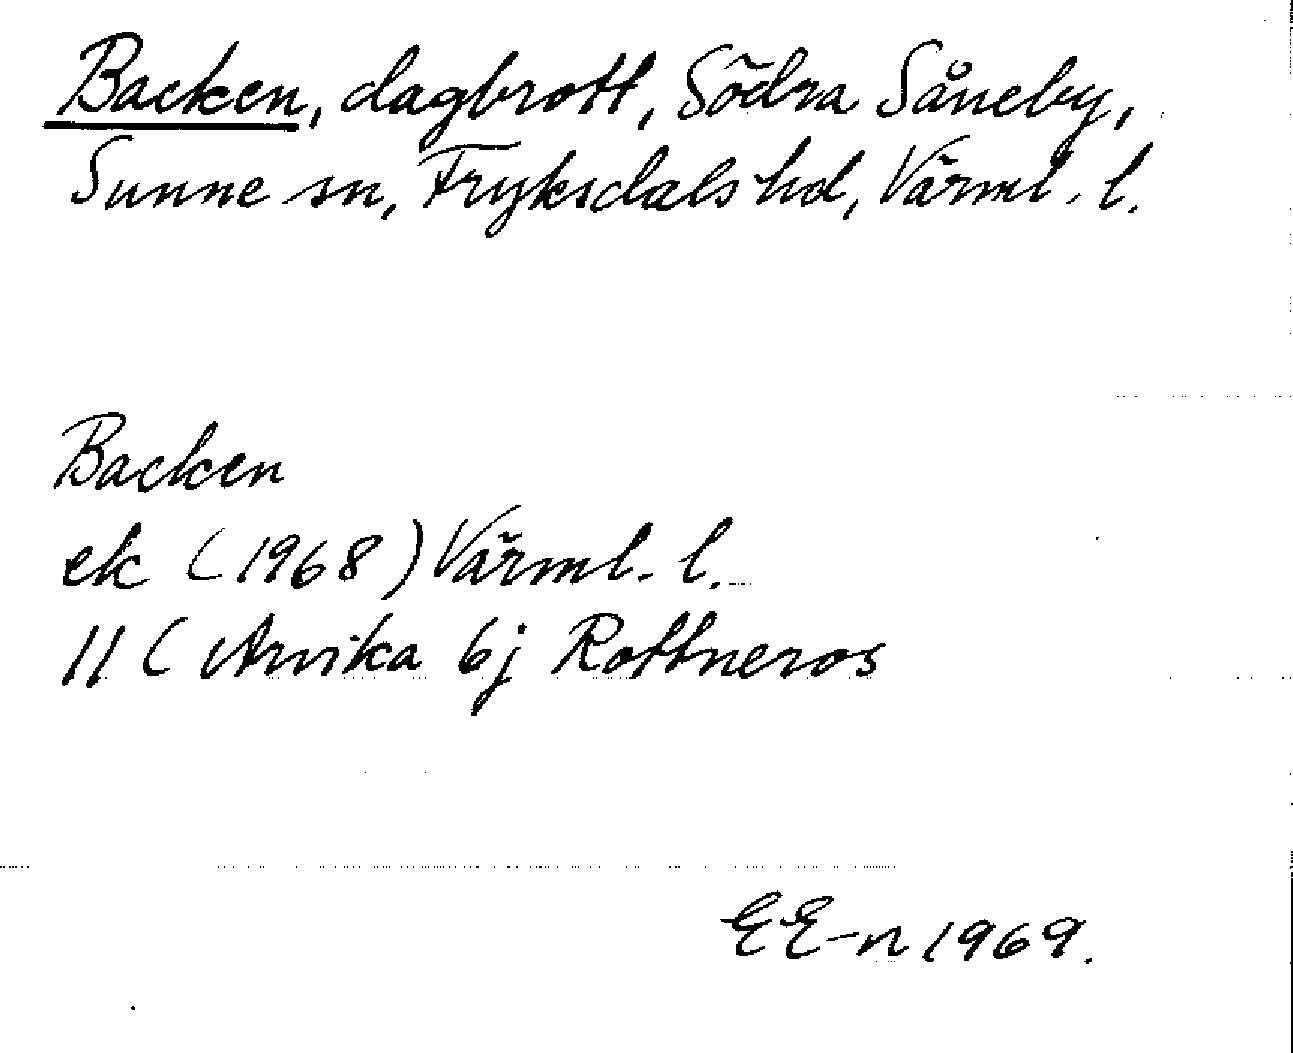 Backen, dagbrott, Södra Såneby,
Sunne sn, Fryksdals hd, Värml. l.
Backen
ek (1968) Värml. l.
11C Arvika 6j Rottneros
EE-n 1969.